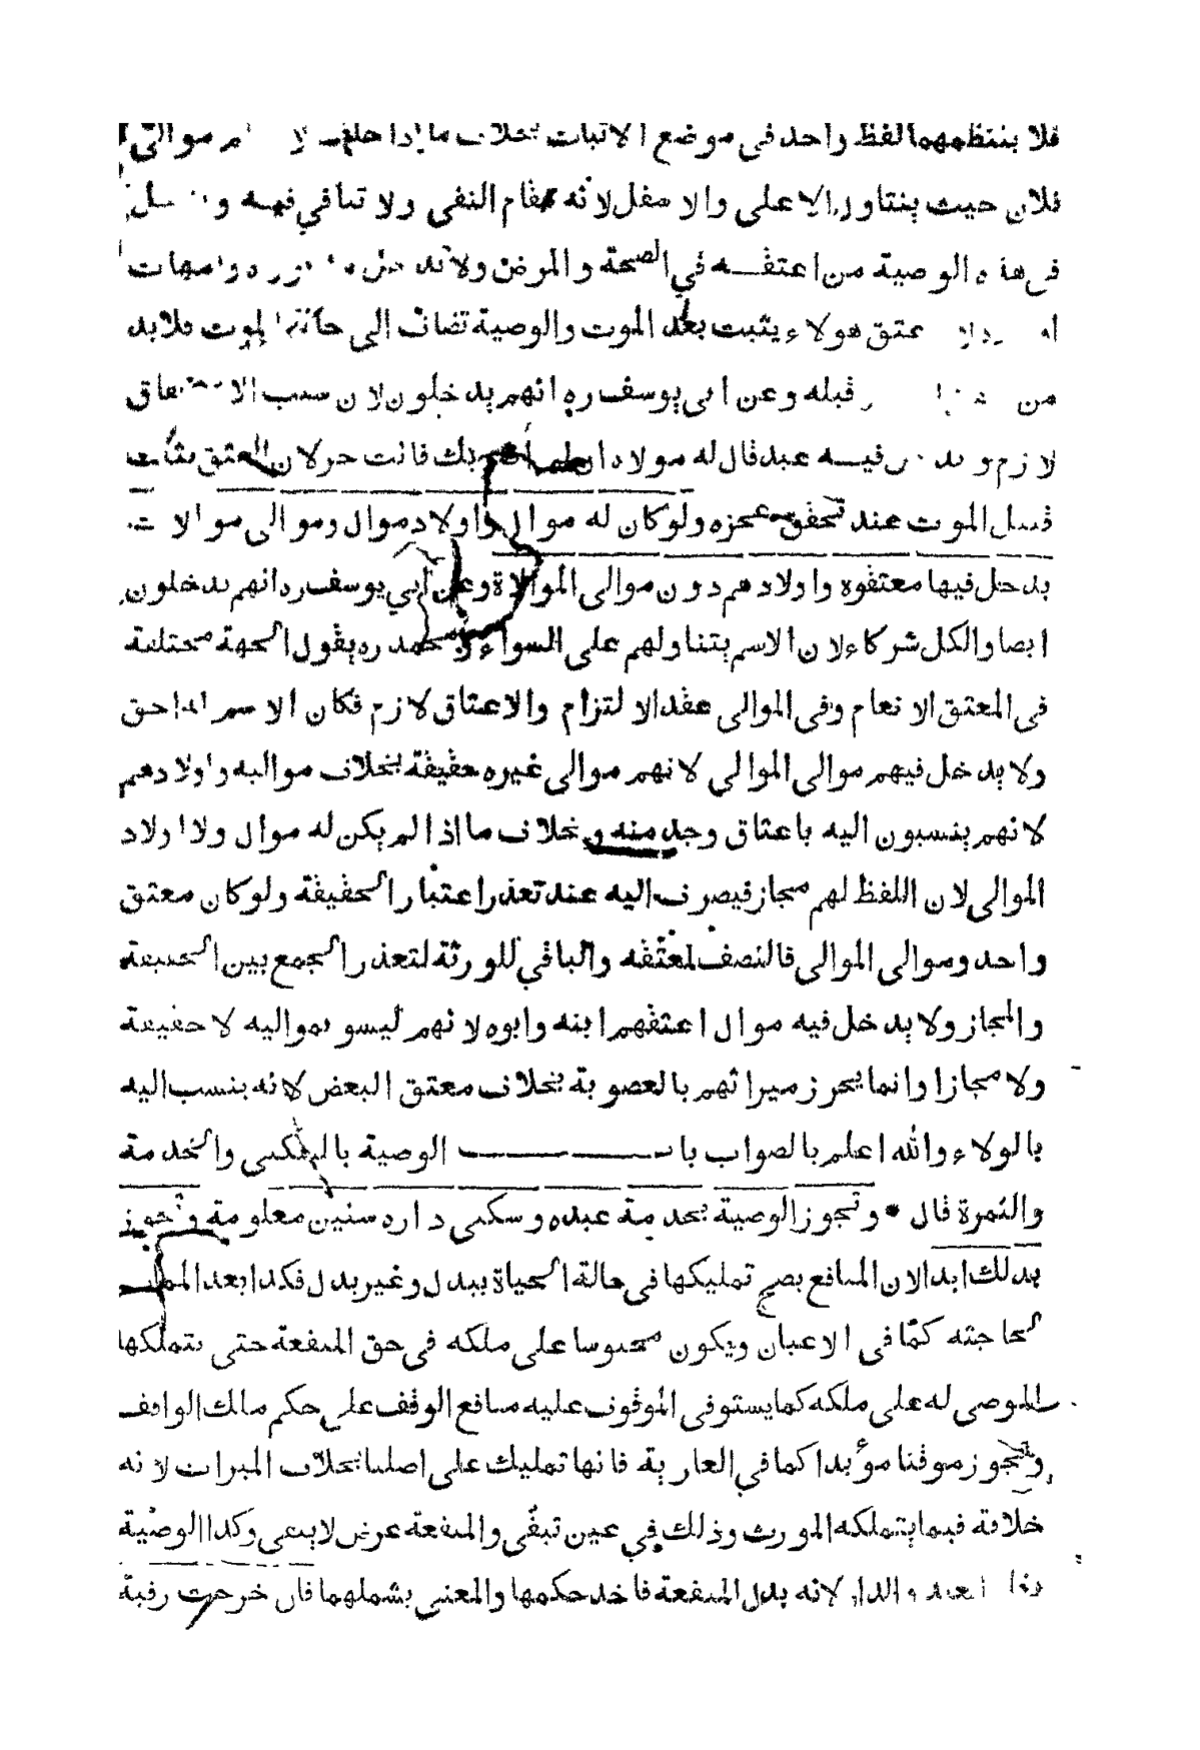 فلا ينتظمهما لفظ واحد في موضع الاثبات بخلاف ما اذا حلف لا موالي
فلان حيث يتناول الاعلى والاسفل لانه مقام النفي ولا تنافي فيه و
في هذه الوصية من اعتقه في الصحة والمرض ولا يدخل وامهات
عتق هولاء يثبت بعد الموت والوصية تضاف الى حالة الموت فلابد
من قبله وعن ابي يوسف ره انهم يدخلون لان سبب الاستحقاق
لازم و فيه عبد قال له مولاه ان لم اضربك فانت حر لان العتق يثبت
قبيل الموت عند تحقق عجزه ولو كان له موال واولاد موال وموالي موالات
يدخل فيها معتقوه واولادهم دون موالي الموالاة وعن ابي يوسف ره انهم يدخلون
ايضا والكل شركاء لان الاسم يتناولهم على السواء ومحمد ره يقول الجهة مختلفة
في المعتق الانعام وفي الموالي عقد الالتزام والاعتاق لازم فكان الاسم احق
ولا يدخل فيهم موالي الموالي لانهم موالي غيره حقيقة بخلاف مواليه واولادهم
لانهم ينسبون اليه باعتاق وجد منه وبخلاف ما اذا لم يكن له موال ولا اولاد
الموالي لان اللفظ لهم مجاز فيصرف اليه عند تعذر اعتبار الحقيقة ولو كان معتق
واحد وموالي الموالي فالنصف لمعتقه والباقي للورثة لتعذر الجمع بين الحقيقة
والمجاز ولا يدخل فيه موال اعتقهم ابنه وابوه لانهم ليسو بمواليه لا حقيقة
ولا مجازا وانما يحرز ميراثهم بالعصوبة بخلاف معتق البعض لانه ينسب اليه
بالولاء والله اعلم بالصواب باب الوصية بالسكنى والخدمة
والثمرة قال • وتجوز الوصية بخدمة عبده وسكنى داره سنين معلومة وتجوز
بذلك ابدا لان المنافع يصح تمليكها في حالة الحياة ببدل وغير بدل فكذا بعد الممات
لحاجته كما في الاعيان ويكون محبوسا على ملكه في حق المنفعة حتى يتملكها
الموصى له على ملكه كما يستوفي الموقوف عليه منافع الوقف على حكم ملك الواقف
وتجوز موقتا مؤبدا كما في العارية فانها تمليك على اصلنا بخلاف الميراث لانه
خلافة فيما يتملكه المورث وذلك في عين تبقى والمنفعة عرض لا يبقى وكذا الوصية
العبد والدار لانه بدل المنفعة فاخذ حكمها والمعنى يشملهما فان خرجت رقبة